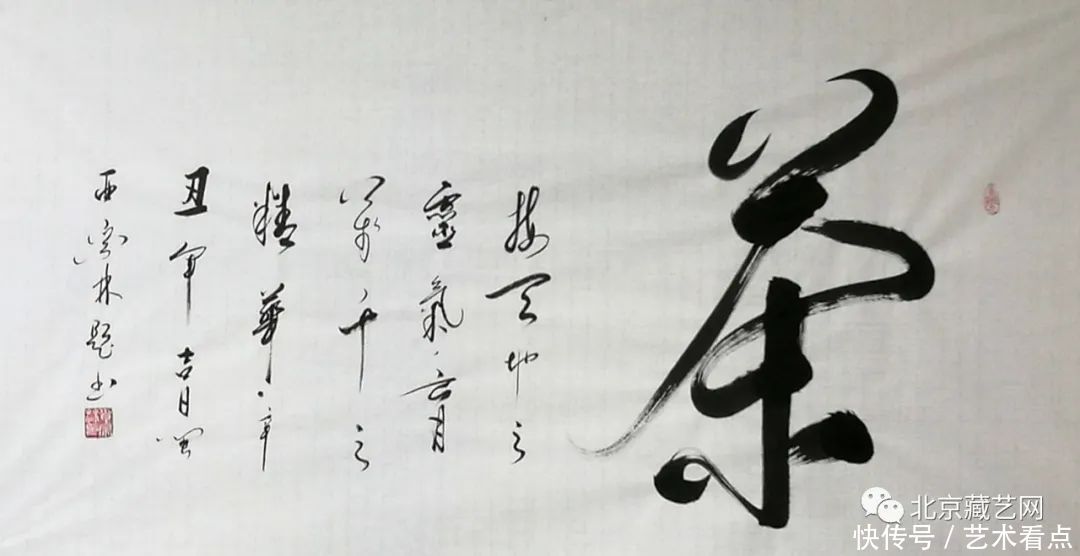 茶
接天地之
靈氣育
之
精華辛
丑年吉日
林题书
北京藏艺网
快传号/艺术看点